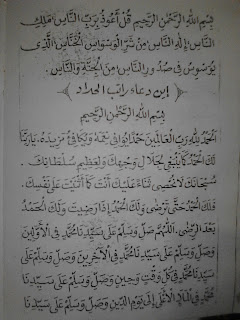 بِسْمِ اللهِ الرَّحْمٰنِ الرَّحِيْمِ قُلْ أَعُوْذُ بِرَبِّ النَّاسِ مَلِكِ
النَّاسِ إِلٰهِ النَّاسِ مِنْ شَرِّ الْوَسْوَاسِ الْخَنَّاسِ الَّذِى
يُوَسْوِسُ فِى صُدُوْرِ النَّاسِ مِنَ الْجِنَّةِ وَالنَّاسِ .
﴿ اين دعاء راتب الحداد ﴾
بِسْمِ اللهِ الرَّحْمٰنِ الرَّحِيْمِ
اَلْحَمْدُ لِلّٰهِ رَبِّ الْعَالَمِيْنَ حَمْدًا يُوَافِى نِعَمَهُ وَيُكَافِئُ مَزِيْدَهُ . يَا رَبَّنَا
لَكَ الْحَمْدُ كَمَا يَنْبَغِى لِجَلَالِ وَجْهِكَ وَلِعَظِيْمِ سُلْطَانِكَ .
سُبْحَانَكَ لَا نُحْصِى ثَنَاءً عَلَيْكَ أَنْتَ كَمَا أَثْنَيْتَ عَلَى نَفْسِكَ .
فَلَكَ الْحَمْدُ حَتَّى تَرْضَى وَلَكَ الْحَمْدُ إِذَا رَضِيْتَ وَلَكَ الْحَمْدُ
بَعْدَ الرِّضَى . اَللّٰهُمَّ صَلِّ وَسَلِّمْ عَلَى سَيِّدِنَا مُحَمَّدٍ فِى الْأَوَّلِيْنَ
وَصَلِّ وَسَلِّمْ عَلَى سَيِّدِنَا مُحَمَّدٍ فِى الْآخِرِيْنَ وَصَلِّ وَسَلِّمْ عَلَى
سَيِّدِنَا مُحَمَّدٍ فِى كُلِّ وَقْتٍ وَحِيْنٍ وَصَلِّ وَسَلِّمْ عَلَى سَيِّدِنَا
مُحَمَّدٍ فِى الْمَلَإِ الْأَعْلَى إِلَى يَوْمِ الدِّيْنِ وَصَلِّ وَسَلِّمْ عَلَى سَيِّدِنَا